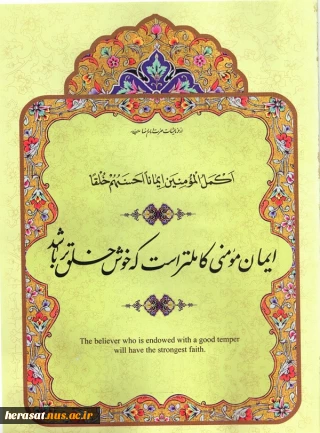 اَكْمَلُ الْمُؤْمِنينَ ايمانًا اَحْسَنُهُمْ خُلْقًا
ایمان مؤمنی کاملتر است که خوش خلق تر باشد
The believer who is endowed with a good temper
will have the strongest faith.
herasat.nus.ac.ir